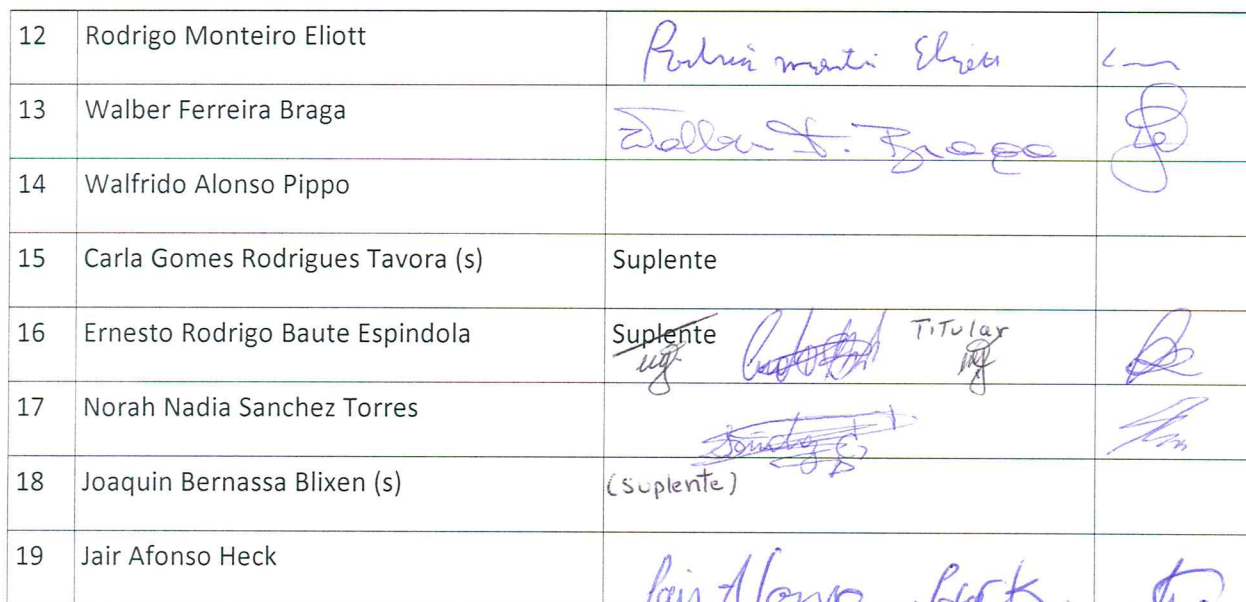 12 Rodrigo Monteiro Eliott
13 Walber Ferreira Braga Walber F. Braga
14 Walfrido Alonso Pippo
15 Carla Gomes Rodrigues Tavora (s) Suplente
16 Ernesto Rodrigo Baute Espindola Suplente TiTular
17 Norah Nadia Sanchez Torres
18 Joaquin Bernassa Blixen (s) (Suplente)
19 Jair Afonso Heck Jair Afonso Heck